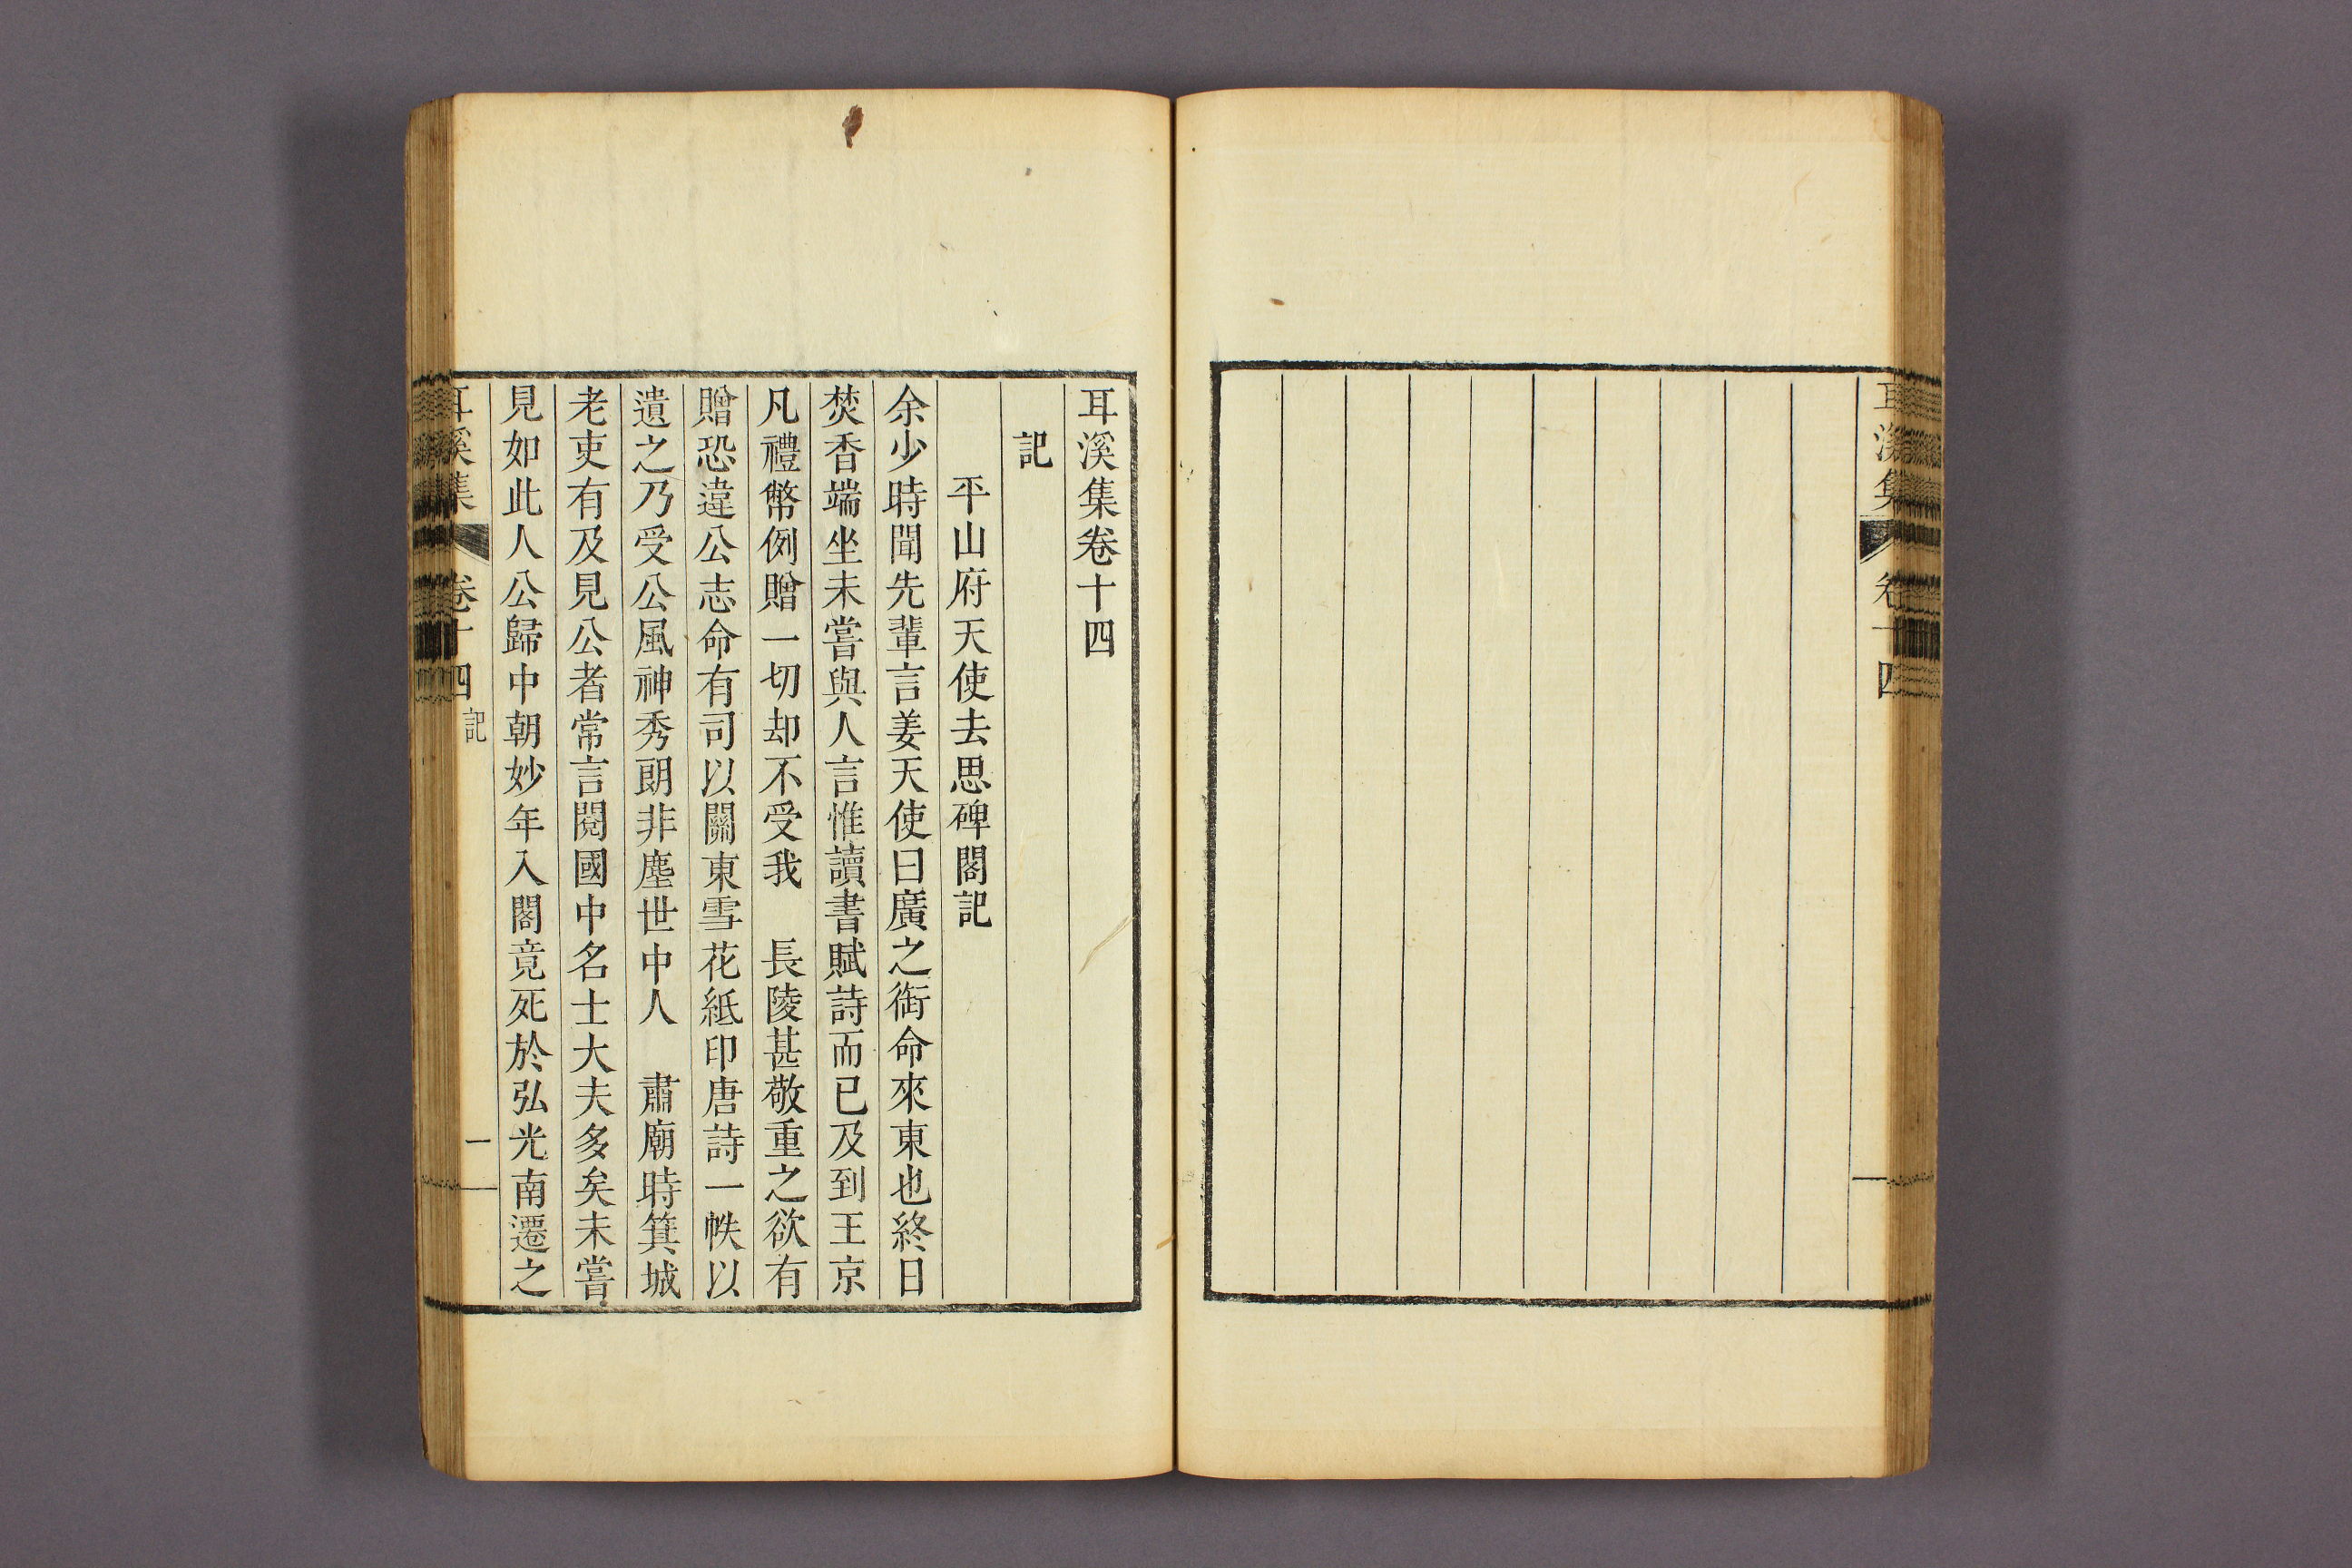 耳溪集
卷十四
耳溪集卷十四
記
平山府天使去思碑閣記
余少時聞先輩言姜天使曰廣之銜命來東也終日
焚香端坐未嘗與人言惟讀書賦詩而已及到王京
凡禮幣例贈一切却不受我　長陵甚敬重之欲有
贈恐違公志命有司以關東雪花紙印唐詩一帙以
遺之乃受公風神秀朗非塵世中人　肅廟時箕城
老吏有及見公者常言閱國中名士大夫多矣未嘗
見如此人公歸中朝妙年入閣竟死於弘光南遷之
耳溪集
卷十四
記
一